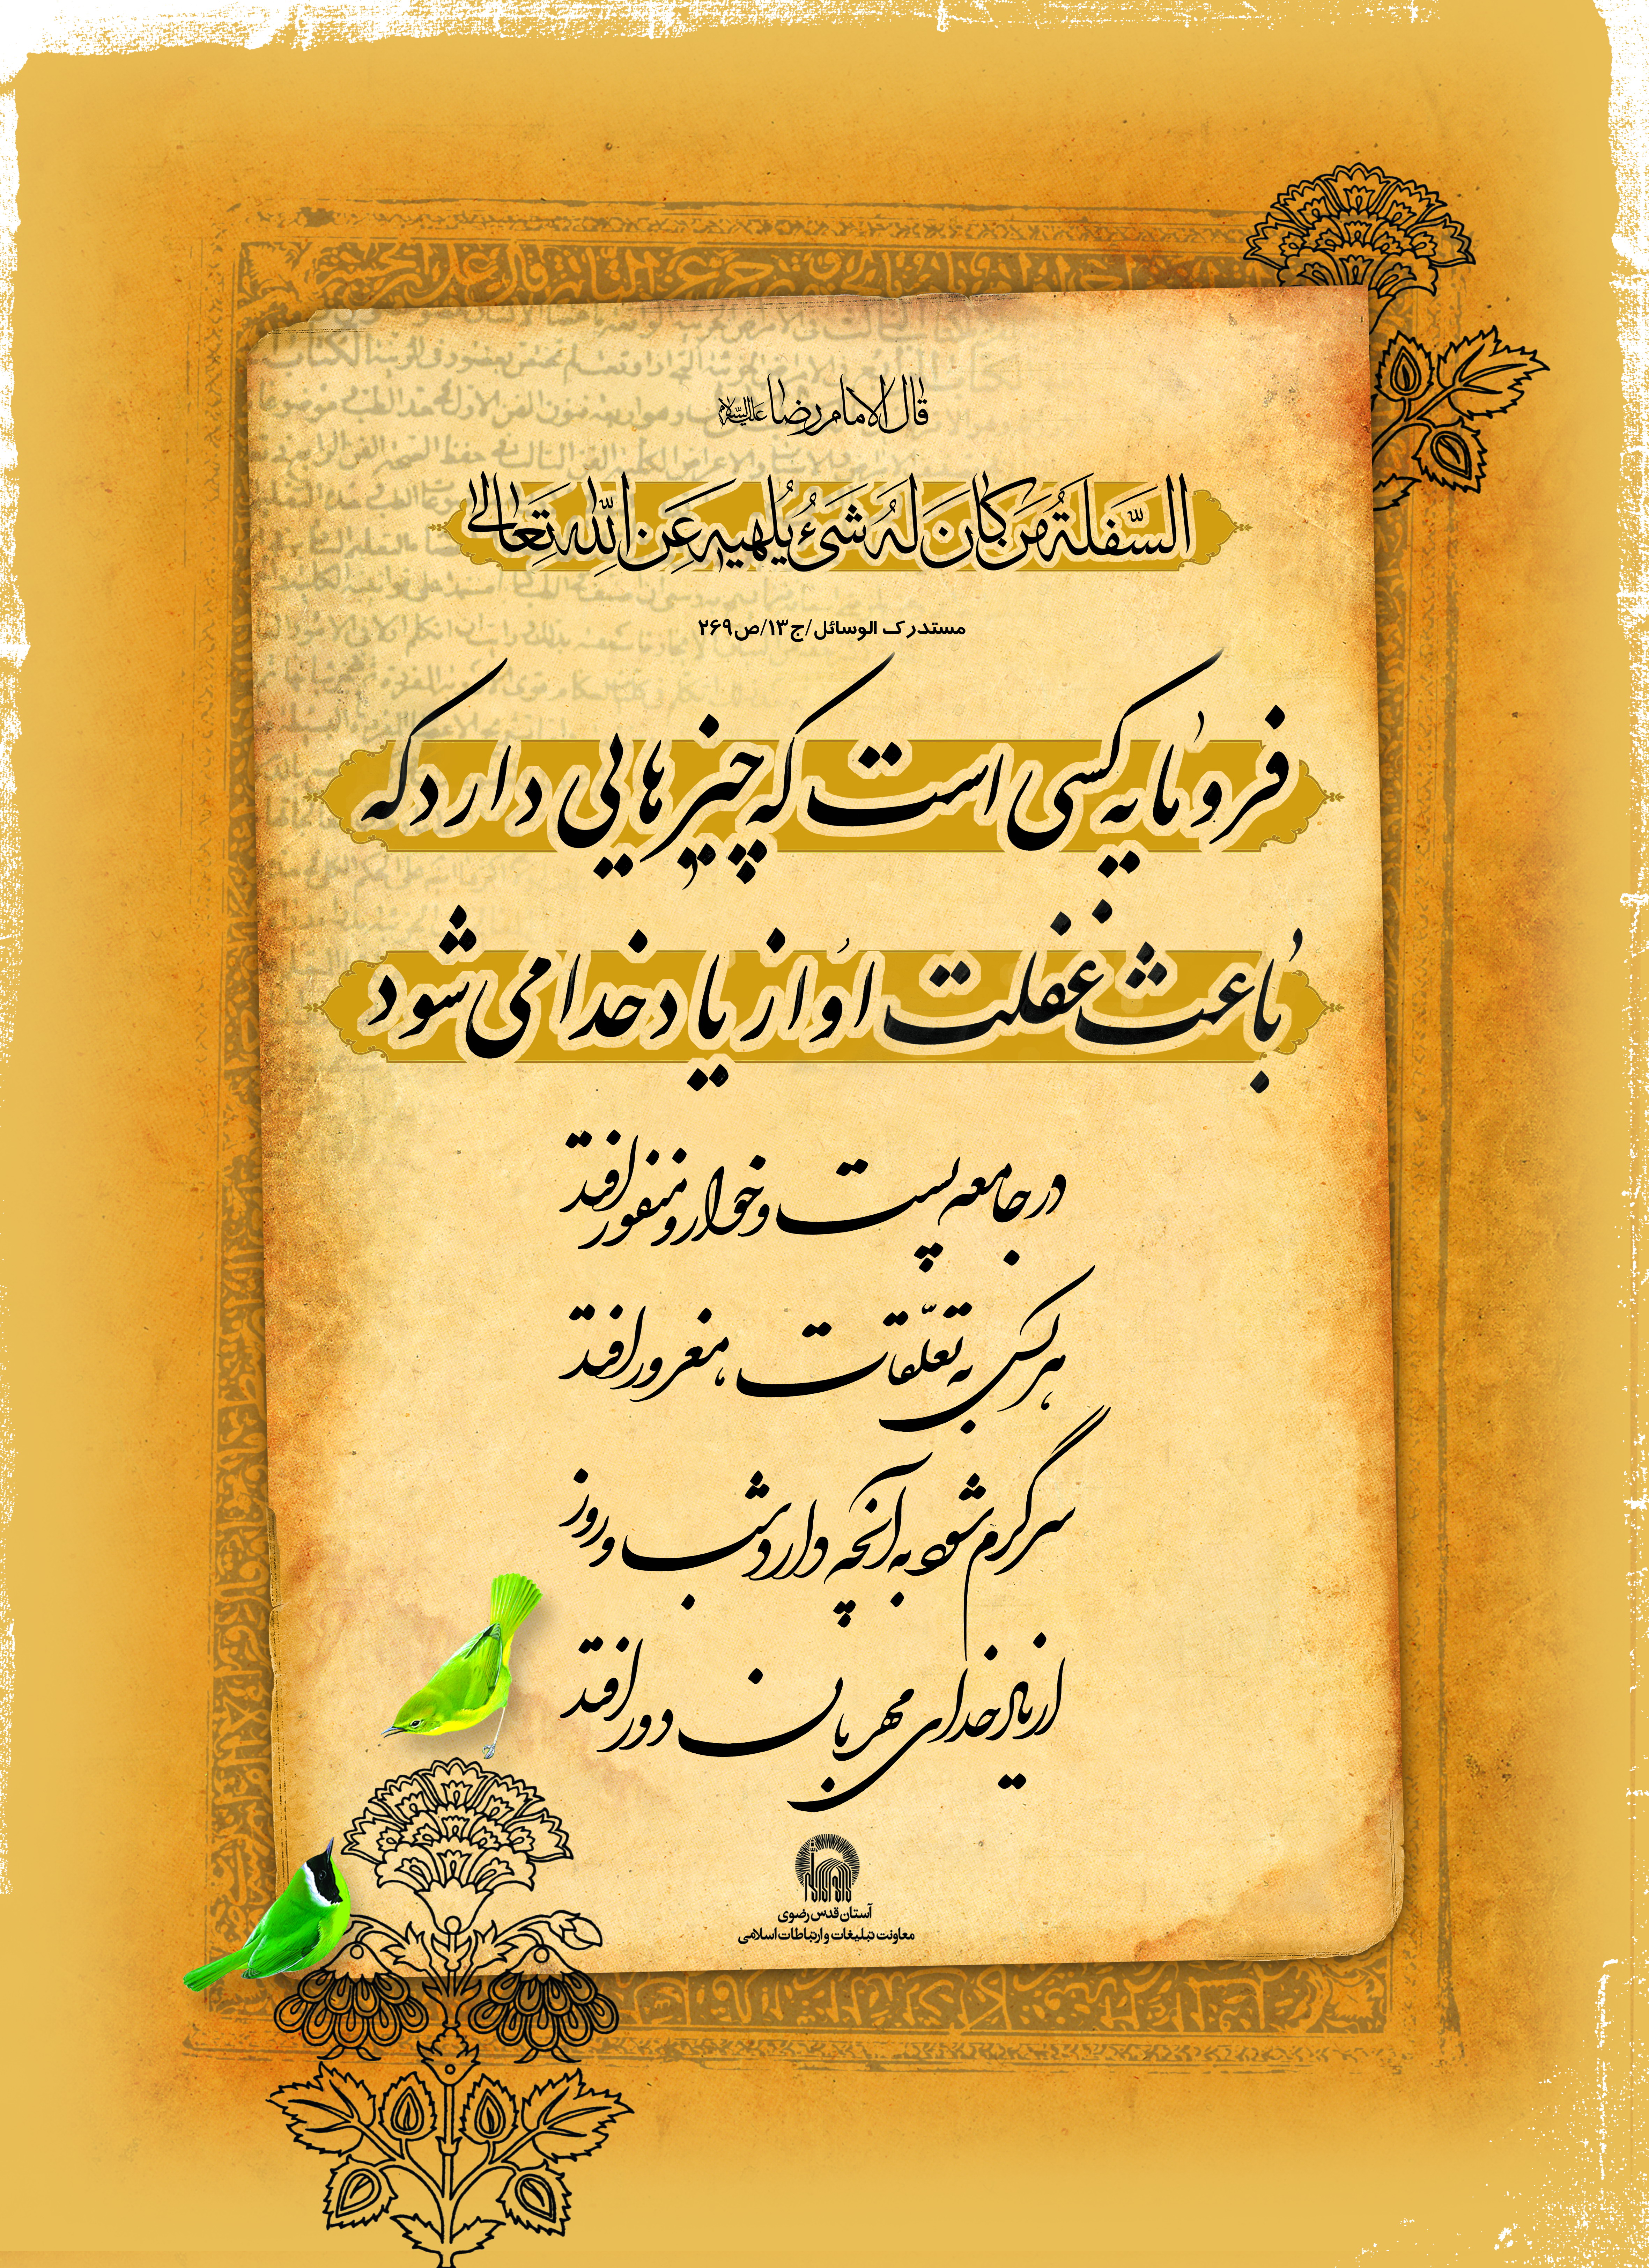 قال الامام رضا علیه‌السلام
السَّفلَةُ مَن کانَ لَهُ شَیءُ یُلهیهِ عَن اللّٰهِ تَعالی
مستدرک الوسائل/ج۱۳/ص۲۶۹
فرومایه کسی است که چیزهایی دارد که
باعث غفلت او از یاد خدا می شود
در جامعه پست و خوار و منفور افتد
هر کس به تعلّقات، مغرور افتد
سرگرم شود به آنچه دارد شب و روز
از یاد خدای مهربان دور افتد
آستان قدس رضوی
معاونت تبلیغات و ارتباطات اسلامی